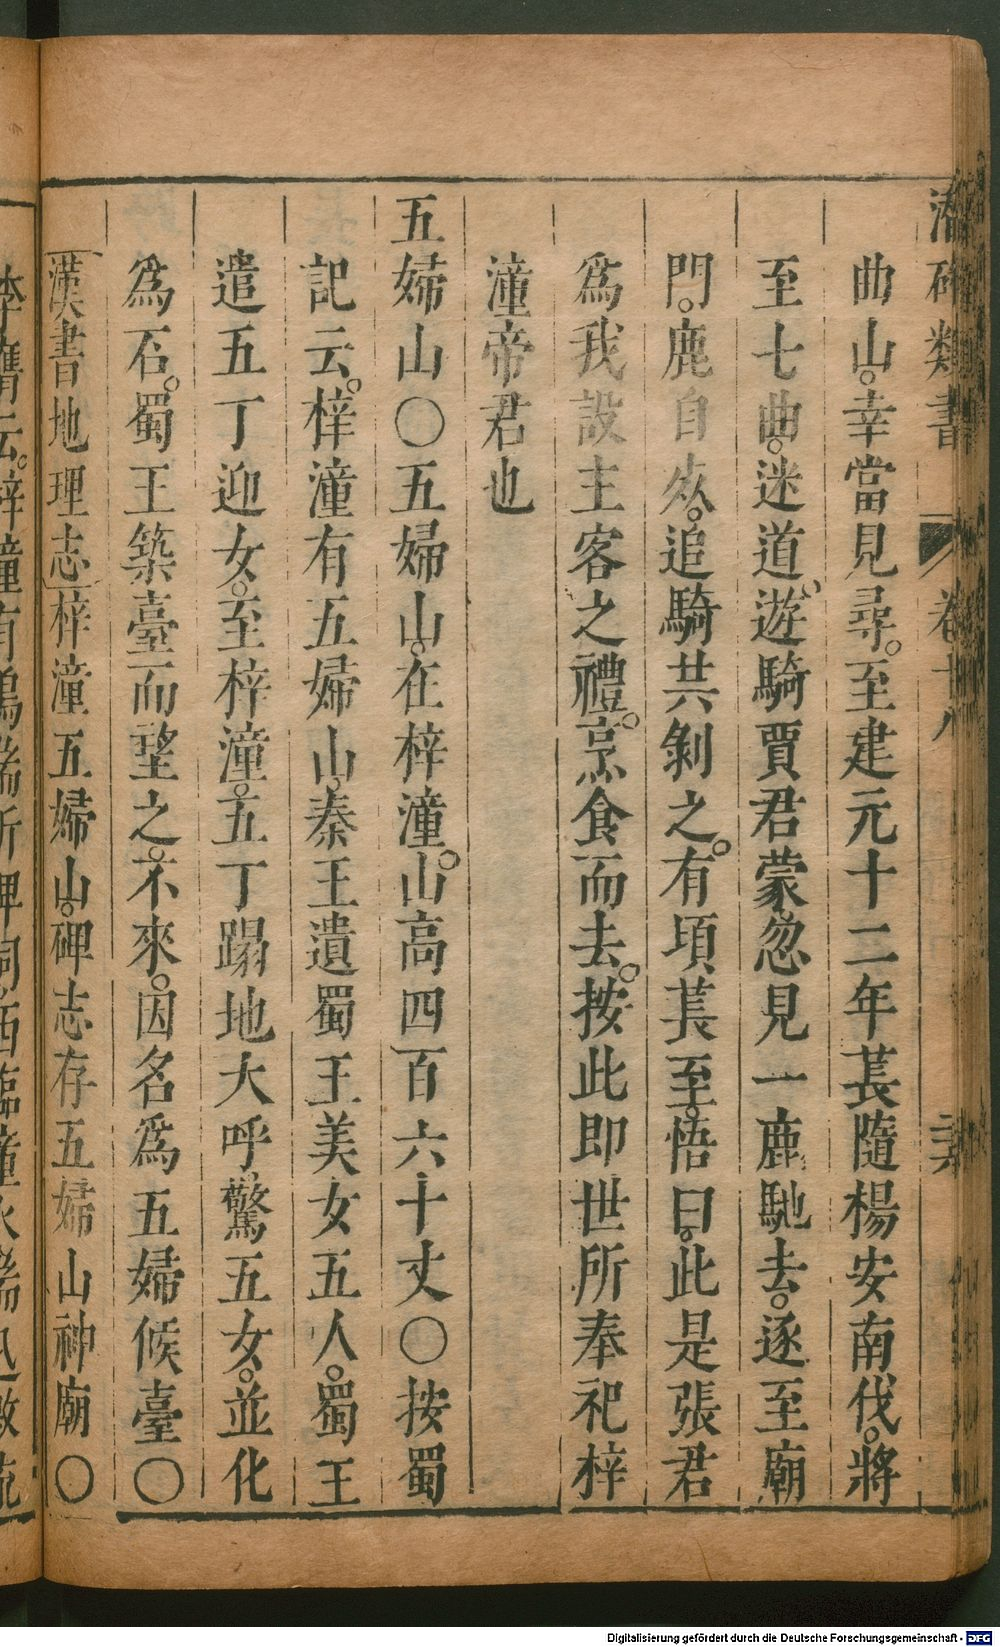 潛確類書 卷十八
曲山。幸當見尋。至建元十二年萇隨楊安南伐。將
至七曲。迷道。遊騎賈君蒙。忽見一鹿馳去。逐至廟
門。鹿自死。追騎共剝之。有頃萇至。悟曰。此是張君
爲我設主客之禮。烹食而去。按此即世所奉祀梓
潼帝君也
五婦山○五婦山。在梓潼。山高四百六十丈○按蜀
記云。梓潼有五婦山。秦王遺蜀王美女五人。蜀王
遣五丁迎女。至梓潼。五丁蹋地大呼。驚五女。並化
爲石。蜀王築臺而望之。不來。因名爲五婦候臺○
漢書地理志梓潼五婦山。碑志存五婦山神廟○
Digitalisierung gefördert durch die Deutsche Forschungsgemeinschaft - DFG